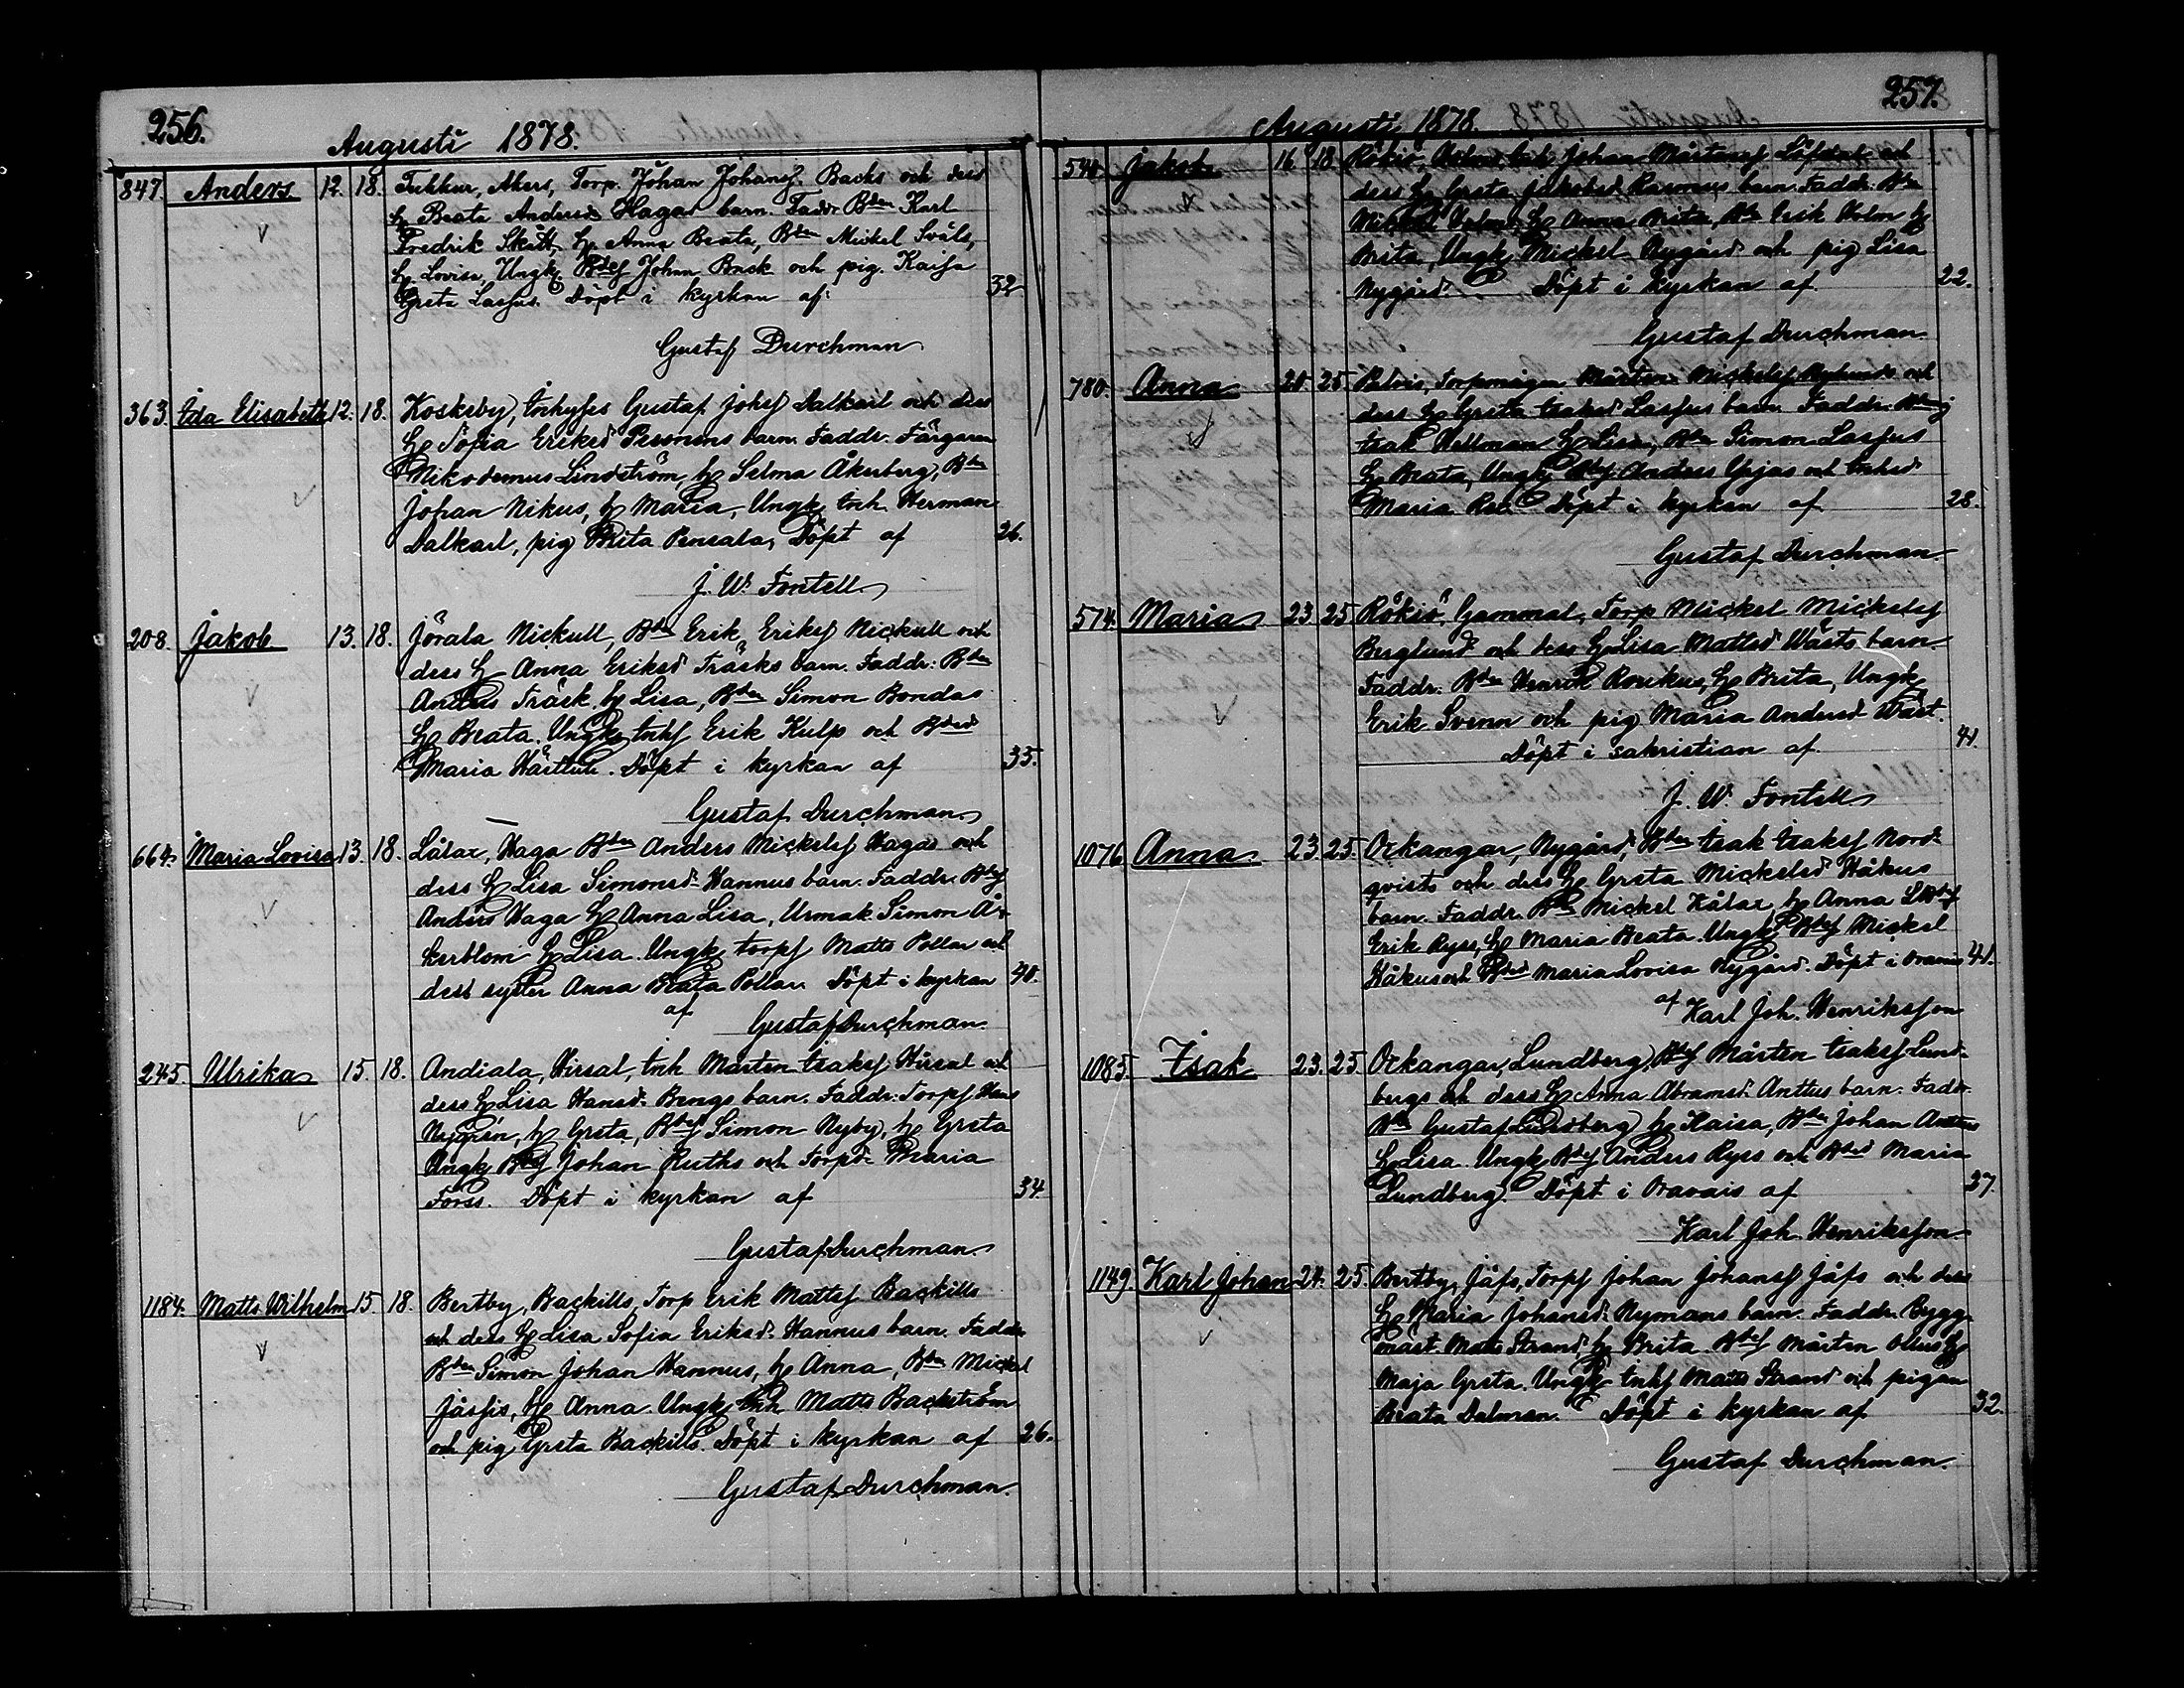 256.
Augusti 1878.
847. Anders 12. 18. Tukkur, Akers, Torp. Johan Johansf. Backs och dess
H. Beata Andersd. Hagas barn. Faddr. Bden Karl
Fredrik Skått, H. Anna Beata, Bden Mickel Svals,
H. Lovisa, Ungk. Bdes Johan Back och pig. Kaisa
Greta Lassus. Döpt i kyrkan af: 32
Gustaf Durchman
363. Ida Elisabeth 12. 18. Koskeby, Inhyses Gustaf Johsf Dalkarl och dess
H. Sofia Eriksd Pesonens barn. Faddr. Färgaren
Nikodemus Lindström, H. Selma Åkerberg, Bden
Johan Nikus, H. Maria, Ungk. Inh. Herman
Dalkarl, pig Brita Pensala, Döpt af 26.
J. W. Fontell
208. Jakob. 13. 18. Jörala Nickull, Bden Erik Eriksf Nickull och
dess H. Anna Eriksd Träsks barn. Faddr: Bden
Anders Träsk H. Lisa, Bden Simon Bondas
H. Beata. Ungk. Inhs Erik Kulp och Bdesd
Maria Härtull. Döpt i kyrkan af 35.
Gustaf Durchman
664. Maria Lovisa 13. 18. Lålax, Haga Bden Anders Mickelsf Hagas och
dess H. Lisa Simonsd. Hannus barn. Faddr. Bdes
Anders Haga H. Anna Lisa, Urmak. Simon Å-
kerblom H. Lisa. Ungk torps Matts Pollar och
dess syster Anna Beata Pollar Döpt i kyrkan 40.
af
Gustaf Durchman.
245. Ulrika 15. 18. Andiala, Hirsal, Inh Mårten Isaksf Hirsal och
dess H. Lisa Hansd. Bengs barn. Faddr. Torps Hans
Nygrén, H. Greta, Bdes Simon Nyby, H. Greta
Ungk. Bdes Johan Ruths och Torpd. Maria
Forss. Döpt i kyrkan af 34
Gustaf Durchman
1184. Matts Wilhelm 15. 18. Bertby, Backills, Torp Erik Mattsf Backills
och dess H. Lisa Sofia Eriksd. Hannus barn. Faddr
Bden Simon Johan Hannus, H. Anna, Bden Mickel
Jåssis, H. Anna. Ungk. Inh Matts Backström
och pig Greta Backills. Döpt i kyrkan af 26.
Gustaf Durchman.
257.
Augusti 1878.
540 Jakob 16 18 Rökiö, Holms Inh Johan Mårtensf och
dess H. Greta Jakobsd. Rasmus barn. Faddr. Bden
Mickel Holms, H. Anna Brita, Bdn Erik Holm H.
Brita, Ungk Mickel Nygård och pig Lisa
Nygård. Döpt i kyrkan af 22.
Gustaf Durchman.
780. Anna 20. 25. Torpmågen Mårten Mickelsf och
dess H. Greta Isaksd Lassus barn. Faddr.
Isak Hellman H. Lisa, Bden Simon Lassus
H. Beata, Ungk Bdes Anders och Inhsd
Maria Döpt i kyrkan af 28.
Gustaf Durchman
574. Maria 23 25 Rökiö, Gammal, Torp Mickel Mickelsf
Berglund och dess H. Lisa Mattsd Wästs barn.
Faddr. Bden Henrik Ronkus, H. Brita, Ungk
Erik Svenn och pig Maria Andersd. Wäst.
Döpt i sakristian af 41.
J. W. Fontell
1076 Anna 23. 25. Ockangar, Nygård, Bden Isak Isaksf Nord-
qvists och dess H. Greta Mickelsd Håkus
barn. Faddr. Bdn Mickel Kålax, H. Anna L Bdes
Erik Ryss, H. Maria Beata. Ungk Bdes Mickel
Håkus och Bdesd Maria Lovisa Nygård. Döpt i Oravais 41.
af Karl Joh. Henriksson
1085. Isak 23. 25. Ockangar, Lundberg, Bdes Mårten Isaksf Lund-
bergs och dess H. Anna Abramsd. Anttus barn. Faddr.
Bdn Gustaf Lundberg, H. Kaisa, Bden Johan Anttus
H. Lisa. Ungk Bdes Anders Ryss och Bdesd Maria
Lundberg. Döpt i Oravais af 37.
Karl Joh. Henriksson
1149. Karl Johan 24. 25. Bertby, Jåfs, Torps Johan Johansf Jåfs och dess
H. Maria Johansd. Nymans barn. Faddr. Bygg-
mäst. Matts Strand, H. Brita. Bdes Mårten Ollus H.
Maja Greta. Ungk Inhs Matts Strand och pigan
Beata Dalman. Döpt i kyrkan af 32.
Gustaf Durchman.